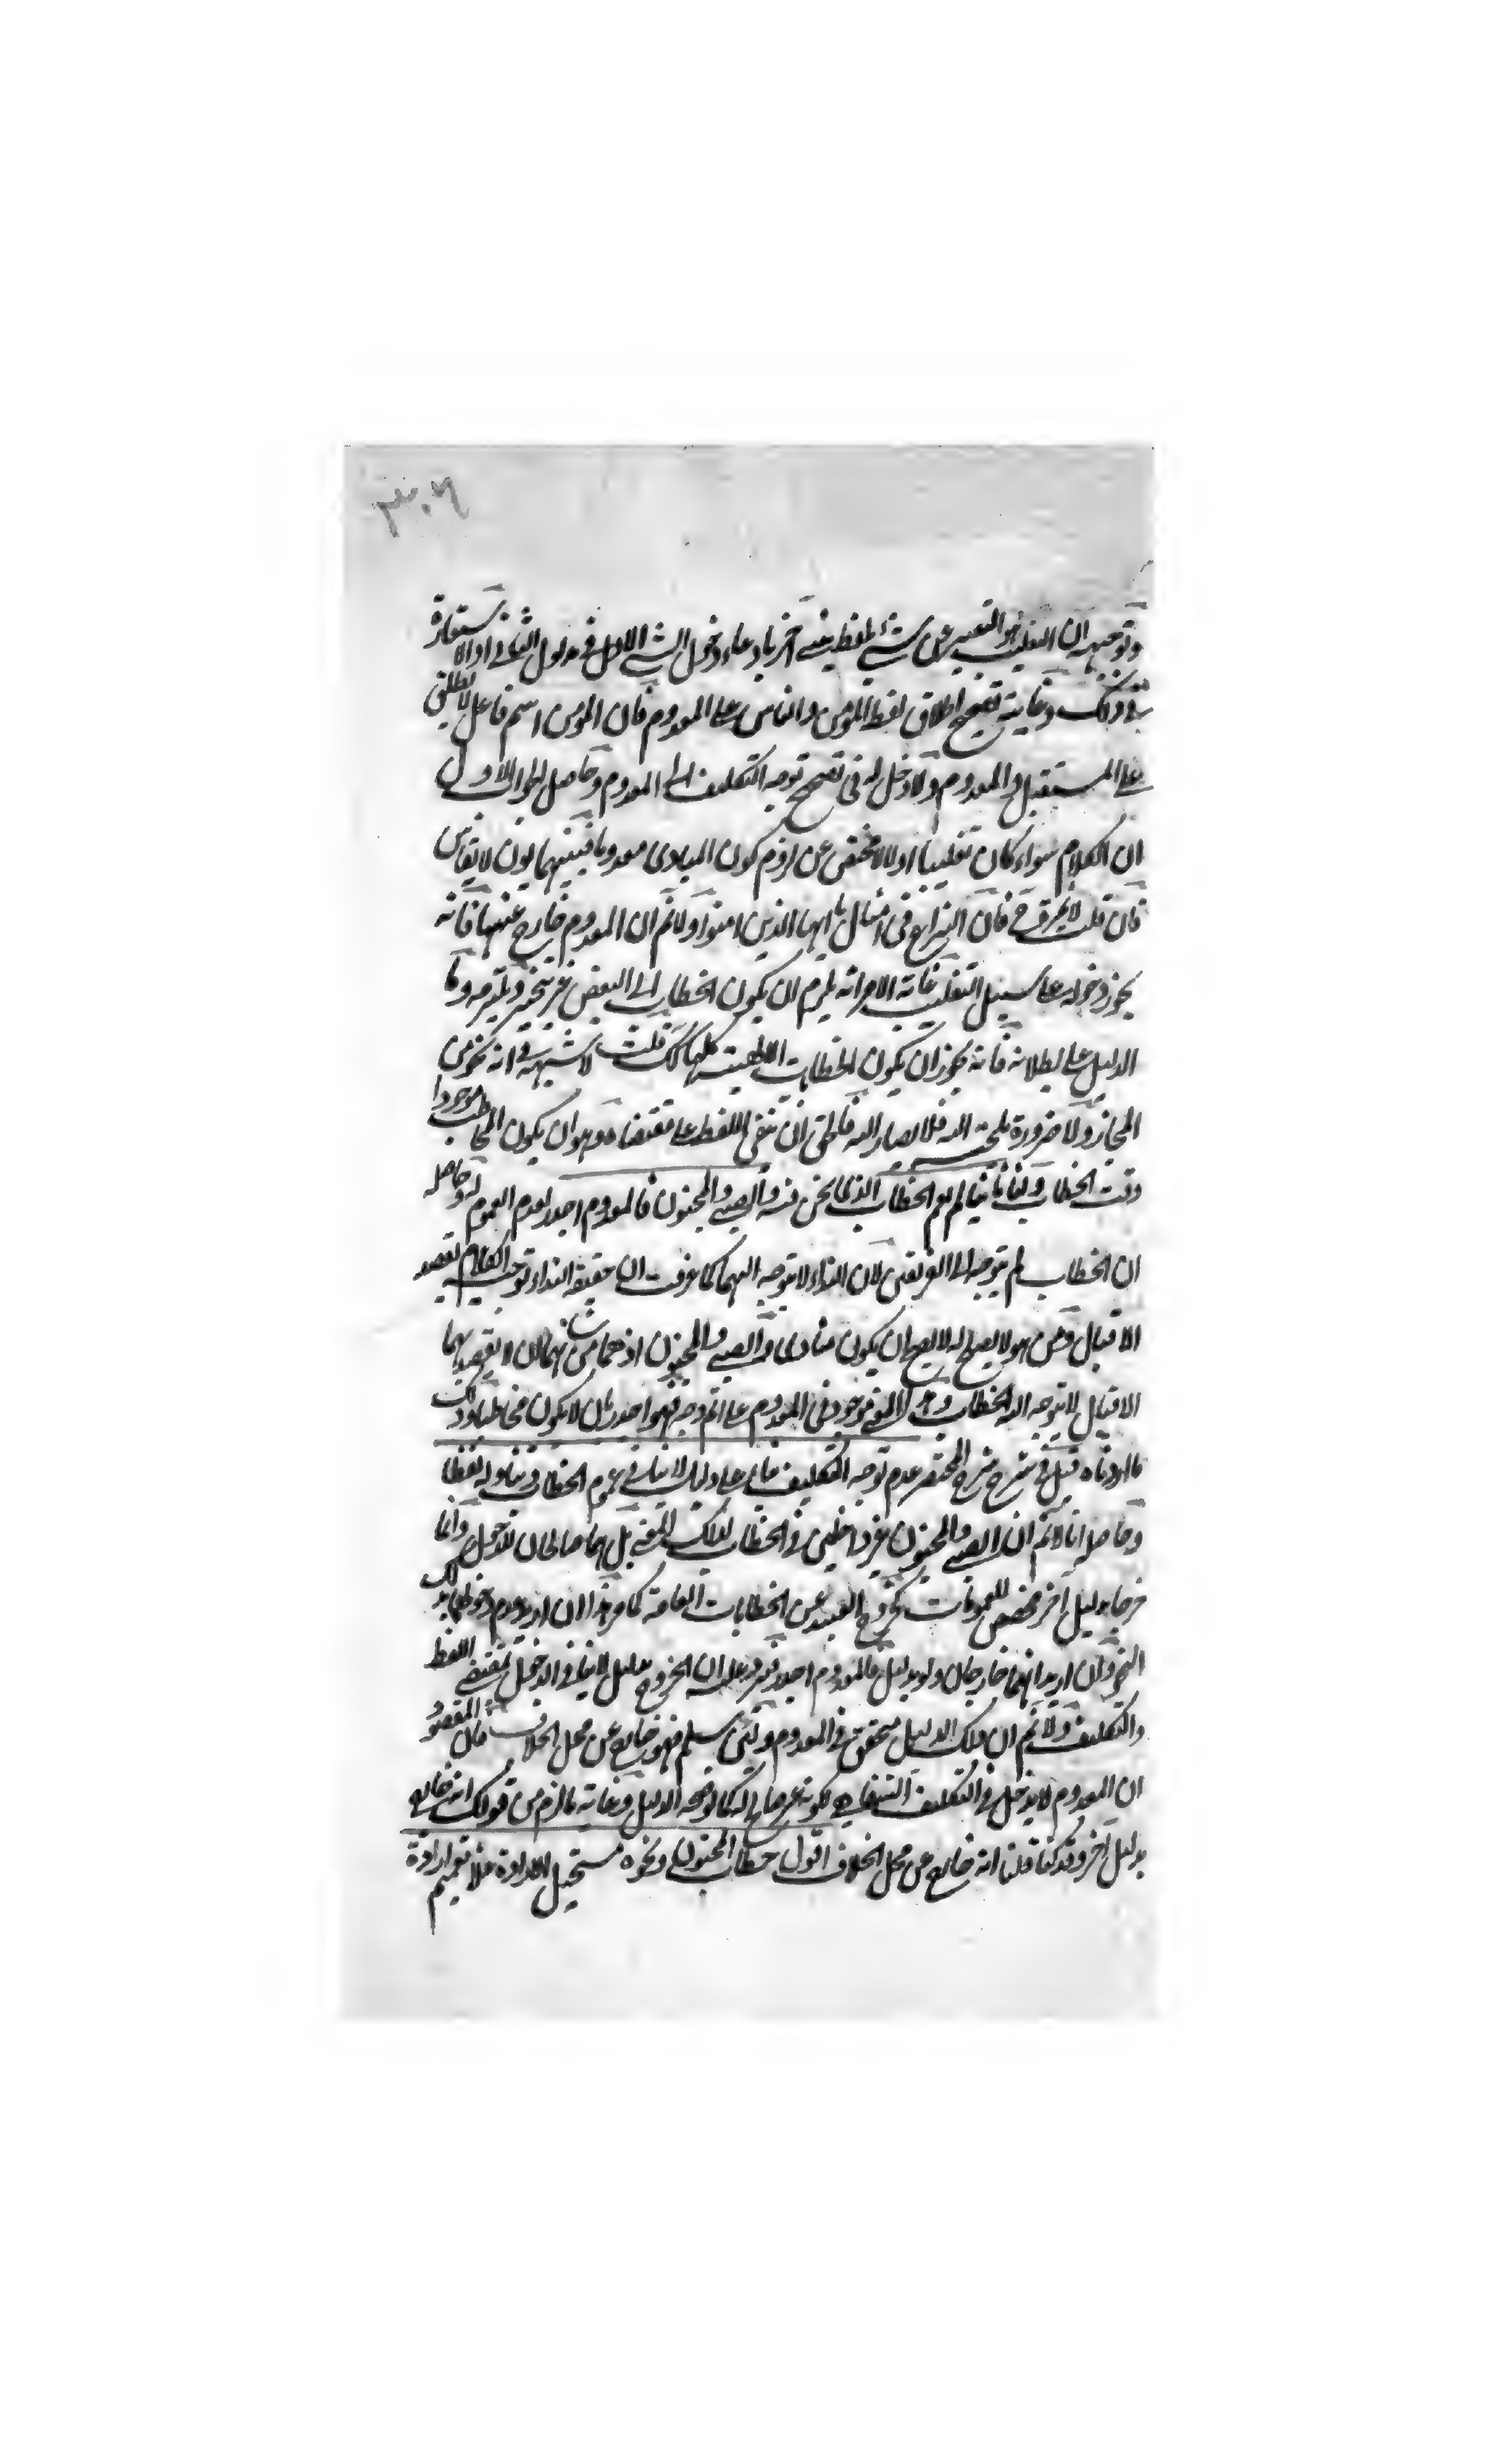 ٣٠٦
وتوجيهه ان التغليب هو التعبير عن شئ بلفظ شئ آخر بادعاء دخول الشئ الاول في مدلول الثاني او الاستعارة
في ذلك وغايته تصحيح اطلاق لفظ المؤمن والناس على المعدوم فان المؤمن اسم فاعل لا يطلق
على المستقبل والمعدوم ولا دخل له في تصحيح توجه التكليف الى المعدوم وحاصل الجواب الاول
ان الكلام سواء كان تغليبا او لا لا مخلص عن لزوم كون المنادى معدوما فبينهما بون لا يقاس
فان قلت لا فرق ح فان النزاع في امثال يا ايها الذين امنوا ولانم ان المعدوم خارج عنها فانه
يجوز دخوله على سبيل التغليب غاية الامر انه يلزم ان يكون الخطاب الى البعض غير تنجيز ونلتزمه وما
الدليل على بطلانه فانه يجوز ان يكون الخطابات اللفظية كلها كك قلت لا شبهة في انه نحو من
المجاز ولا ضرورة ملجئة اليه فلا يصار اليه فالحق ان يبقى اللفظ على مقتضاه وهو ان يكون المخاطب موجودا
وقت الخطاب ولنا ثانيا لم يعم الخطاب الذي نحن فيه والصبي والمجنون فالمعدوم اجدر لعدم العموم له وحاصله
ان الخطاب لم يتوجه الى الفريقين لان النداء لا يتوجه اليهما كما عرفت ان حقيقة النداء توجيه الكلام لقصد
الاقبال ومن هو لا يصلح له لا يصلح ان يكون منادى والصبي والمجنون اذ هما من شانهما ان لا يقصد بهما
الاقبال لا يتوجه اليه الخطاب وهذا المعنى موجود في المعدوم على اتم وجه فهو اجدر بان لا يكون مخاطبا وذلك
ما اوردناه قبل في شرح شرح المختصر عدم توجه التكليف بناء على دليل لا ينافي عموم الخطاب وتناوله لفظا
وحاصله انا لانم ان الصبي والمجنون غير داخلين في الخطاب لذلك المعنى بل هما صالحان للدخول وانما
خرجا بدليل آخر مخصص للعمومات كخروج العبيد عن الخطابات العامة كما مر هذا ان اريد عدم دخولهما بذلك
النحو وان اريد انهما خارجان ولو بدليل فالمعدوم اجدر فيرد عليه ان الخروج بدليل لا ينافي الدخول بمقتضى اللفظ
والتكليف ولانم ان ذلك الدليل متحقق في المعدوم ولئن سلم فهو خارج عن محل الخلاف فان المقصود
ان المعدوم لا يدخل في التكليف الشفاهي لكونه غير صالح له كما توضحه الدليل وغاية ما لزم من قولك انه خارج
بدليل آخر وقد كنا قلنا انه خارج عن محل الخلاف اقول خطاب المجنون ونحوه مستحيل الارادة فلا تعميم ارادة